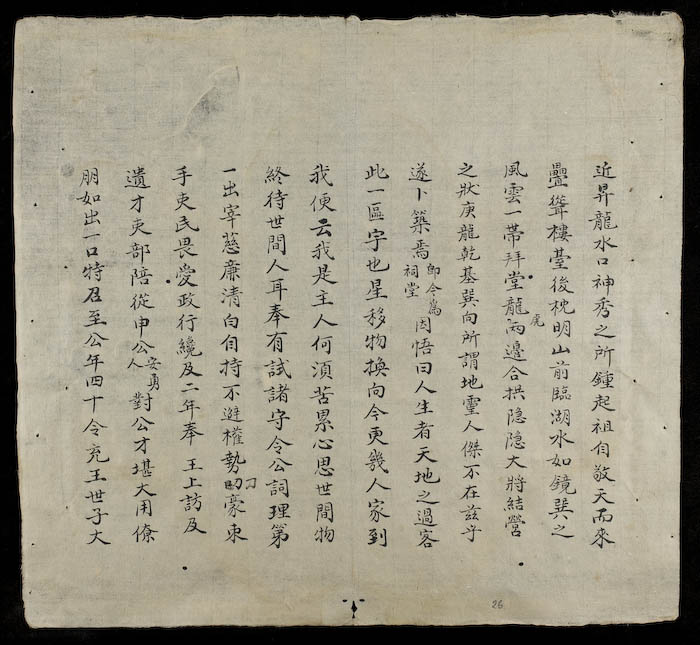 近昇龍水口神秀之所鍾起祖自敬天而來
疊聳樓臺後枕明山前臨湖水如鏡巽之
風雲一帶拜堂龍虎兩邊合拱隐隐大將結營
之狀庚龍乾基巽向所謂地靈人傑不在兹乎
遂卜築焉即今為祠堂因悟曰人生者天地之過客
此一區宇也星移物換向今更幾人家到
我便云我是主人何須苦累心思世間物
終待世間人耳奉有試諸守令公詞理第
一出宰慈廉清白自持不避權勢刁豪束
手吏民畏愛政行纔及二年奉 王上訪及
遺才吏部陪從申公安勇人對公才堪大用僚
朋如出一口特召至公年四十令充王世子大
26